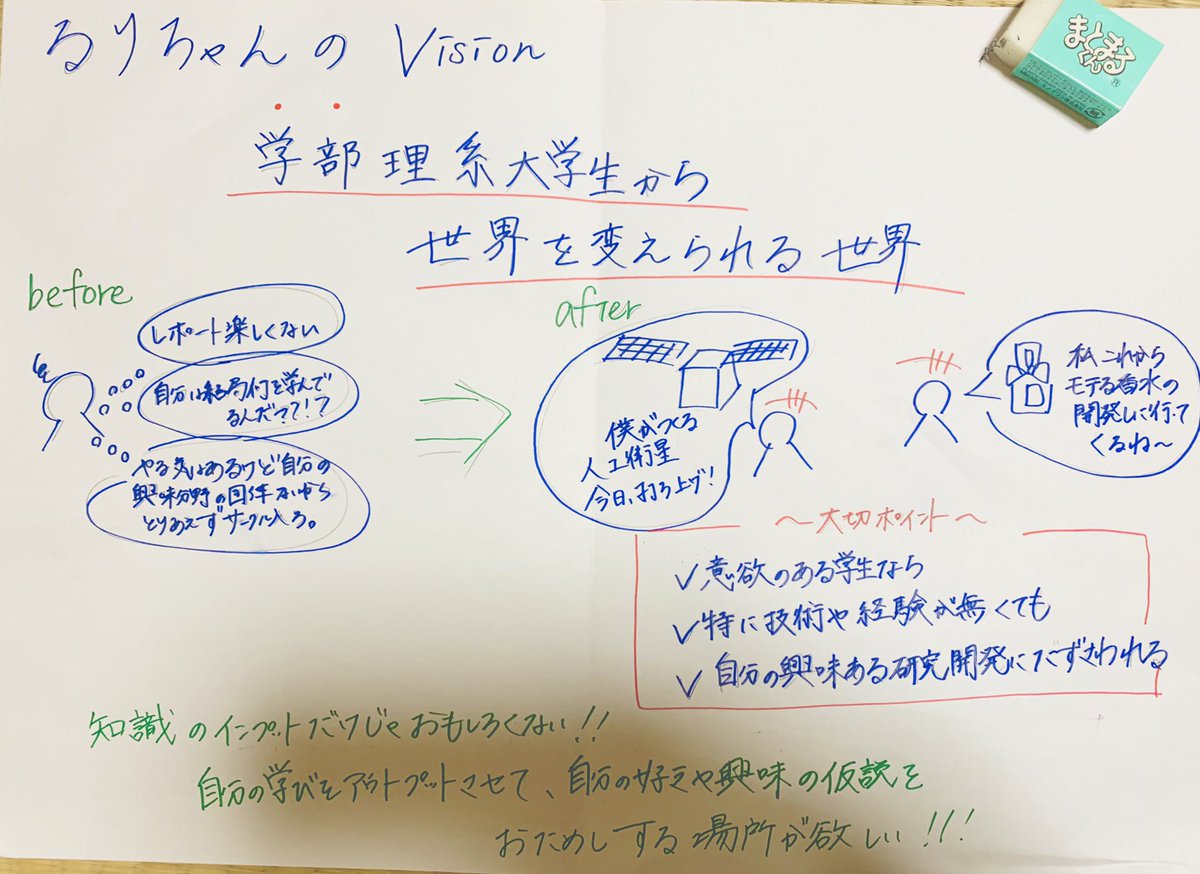 るりちゃんの Vision
まとまるくん
学部理系大学生から
世界を変えられる世界
before
レポート楽しくない
自分は結局何を学んで
るんだって!?
やる気はあるけど自分の
興味分野の団体ないから
とりあえずサークル入ろ。
after
僕がつくる
人工衛星
今日、打ち上げ!
私これから
モテる香水の
開発しに行って
くるね〜
〜大切ポイント〜
✓意欲のある学生なら
✓特に技術や経験が無くても
✓自分の興味ある研究開発にたずさわれる
知識のインプットだけじゃおもしろくない!!
自分の学びをアウトプットさせて、自分の好きや興味の仮説を
おためしする場所が欲しい!!!